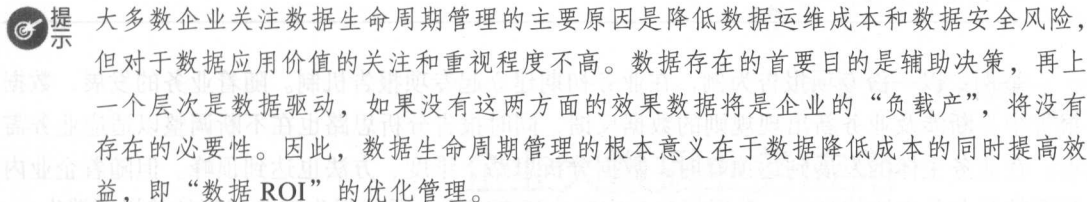 提示 大多数企业关注数据生命周期管理的主要原因是降低数据运维成本和数据安全风险，
但对于数据应用价值的关注和重视程度不高。数据存在的首要目的是辅助决策，再上
一个层次是数据驱动，如果没有这两方面的效果数据将是企业的“负载产”，将没有
存在的必要性。因此，数据生命周期管理的根本意义在于数据降低成本的同时提高效
益，即“数据 ROI”的优化管理。